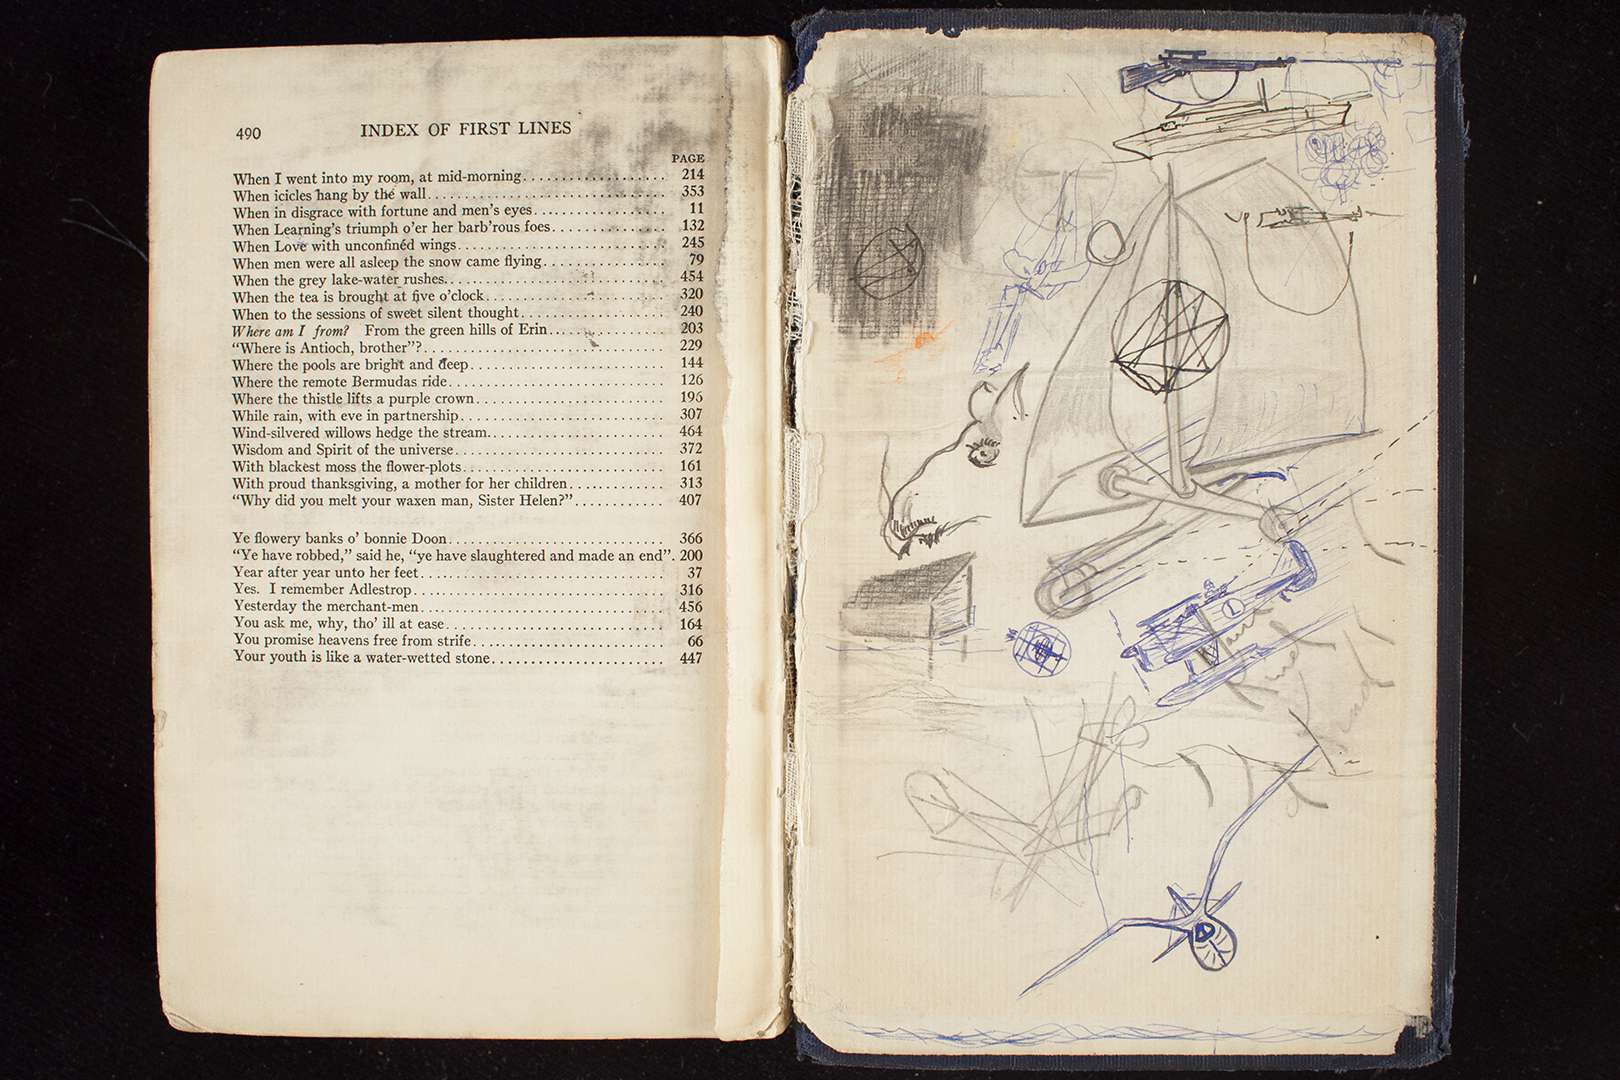 490 INDEX OF FIRST LINES
PAGE
When I went into my room, at mid-morning................... 214
When icicles hang by the wall............................ 353
When in disgrace with fortune and men's eyes................. 11
When Learning's triumph o'er her barb'rous foes............... 132
When Love with unconfinéd wings......................... 245
When men were all asleep the snow came flying................ 79
When the grey lake-water rushes........................... 454
When the tea is brought at five o'clock...................... 320
When to the sessions of sweet silent thought.................. 240
Where am I from? From the green hills of Erin............... 203
“Where is Antioch, brother”?............................. 229
Where the pools are bright and deep........................ 144
Where the remote Bermudas ride.......................... 126
Where the thistle lifts a purple crown....................... 196
While rain, with eve in partnership......................... 307
Wind-silvered willows hedge the stream...................... 464
Wisdom and Spirit of the universe.......................... 372
With blackest moss the flower-plots......................... 161
With proud thanksgiving, a mother for her children............ 313
“Why did you melt your waxen man, Sister Helen?”........... 407
Ye flowery banks o' bonnie Doon.......................... 366
“Ye have robbed,” said he, “ye have slaughtered and made an end”. 200
Year after year unto her feet.............................. 37
Yes. I remember Adlestrop............................... 316
Yesterday the merchant-men.............................. 456
You ask me, why, tho' ill at ease........................... 164
You promise heavens free from strife........................ 66
Your youth is like a water-wetted stone...................... 447